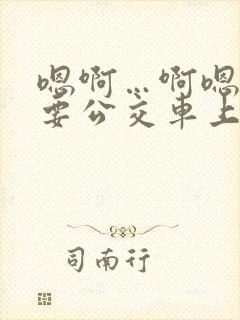 嗯啊…啊嗯
要公交车上
司南行